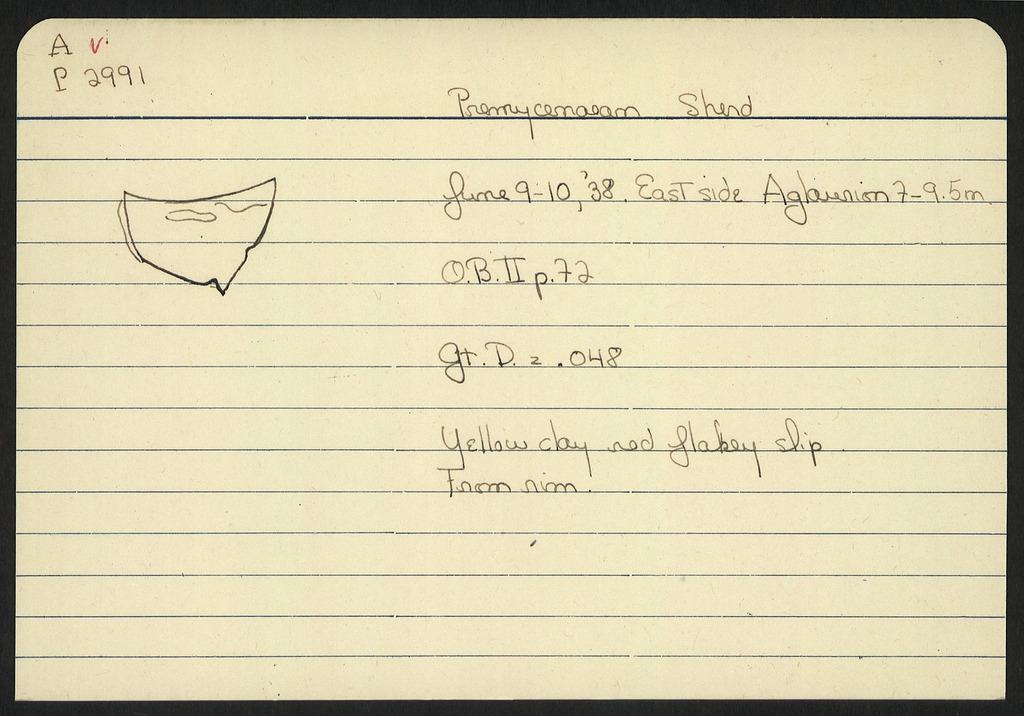 A v.
P 2991
Premycenaean Sherd
June 9-10, '38. East side Aglaurion 7-9.5m.
O.B. II p.72
Gt. D. = .048
Yellow clay red flakey slip.
From rim.